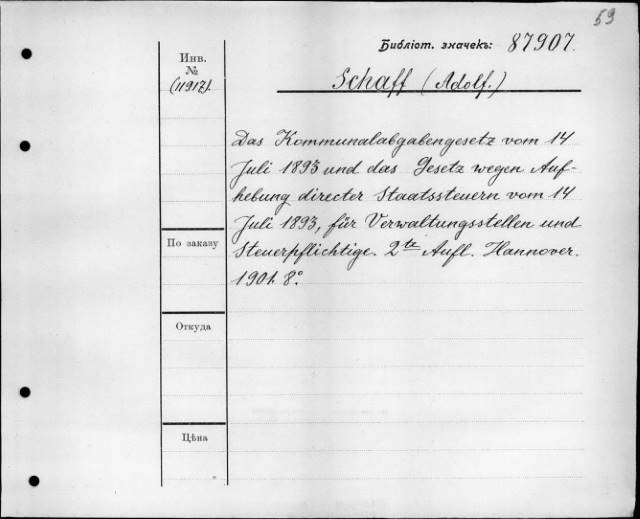 59
Библіот. значекъ: 87907.
Инв.
№
(11917).
Schaff (Adolf.)
Das Kommunalabgabengesetz vom 14
Juli 1893 und das Gesetz wegen Auf-
hebung directer Staatssteuern vom 14
Juli 1893, für Verwaltungsstellen und
Steuerpflichtige. 2te Aufl. Hannover.
1901. 8°.
По заказу
Откуда
Цѣна